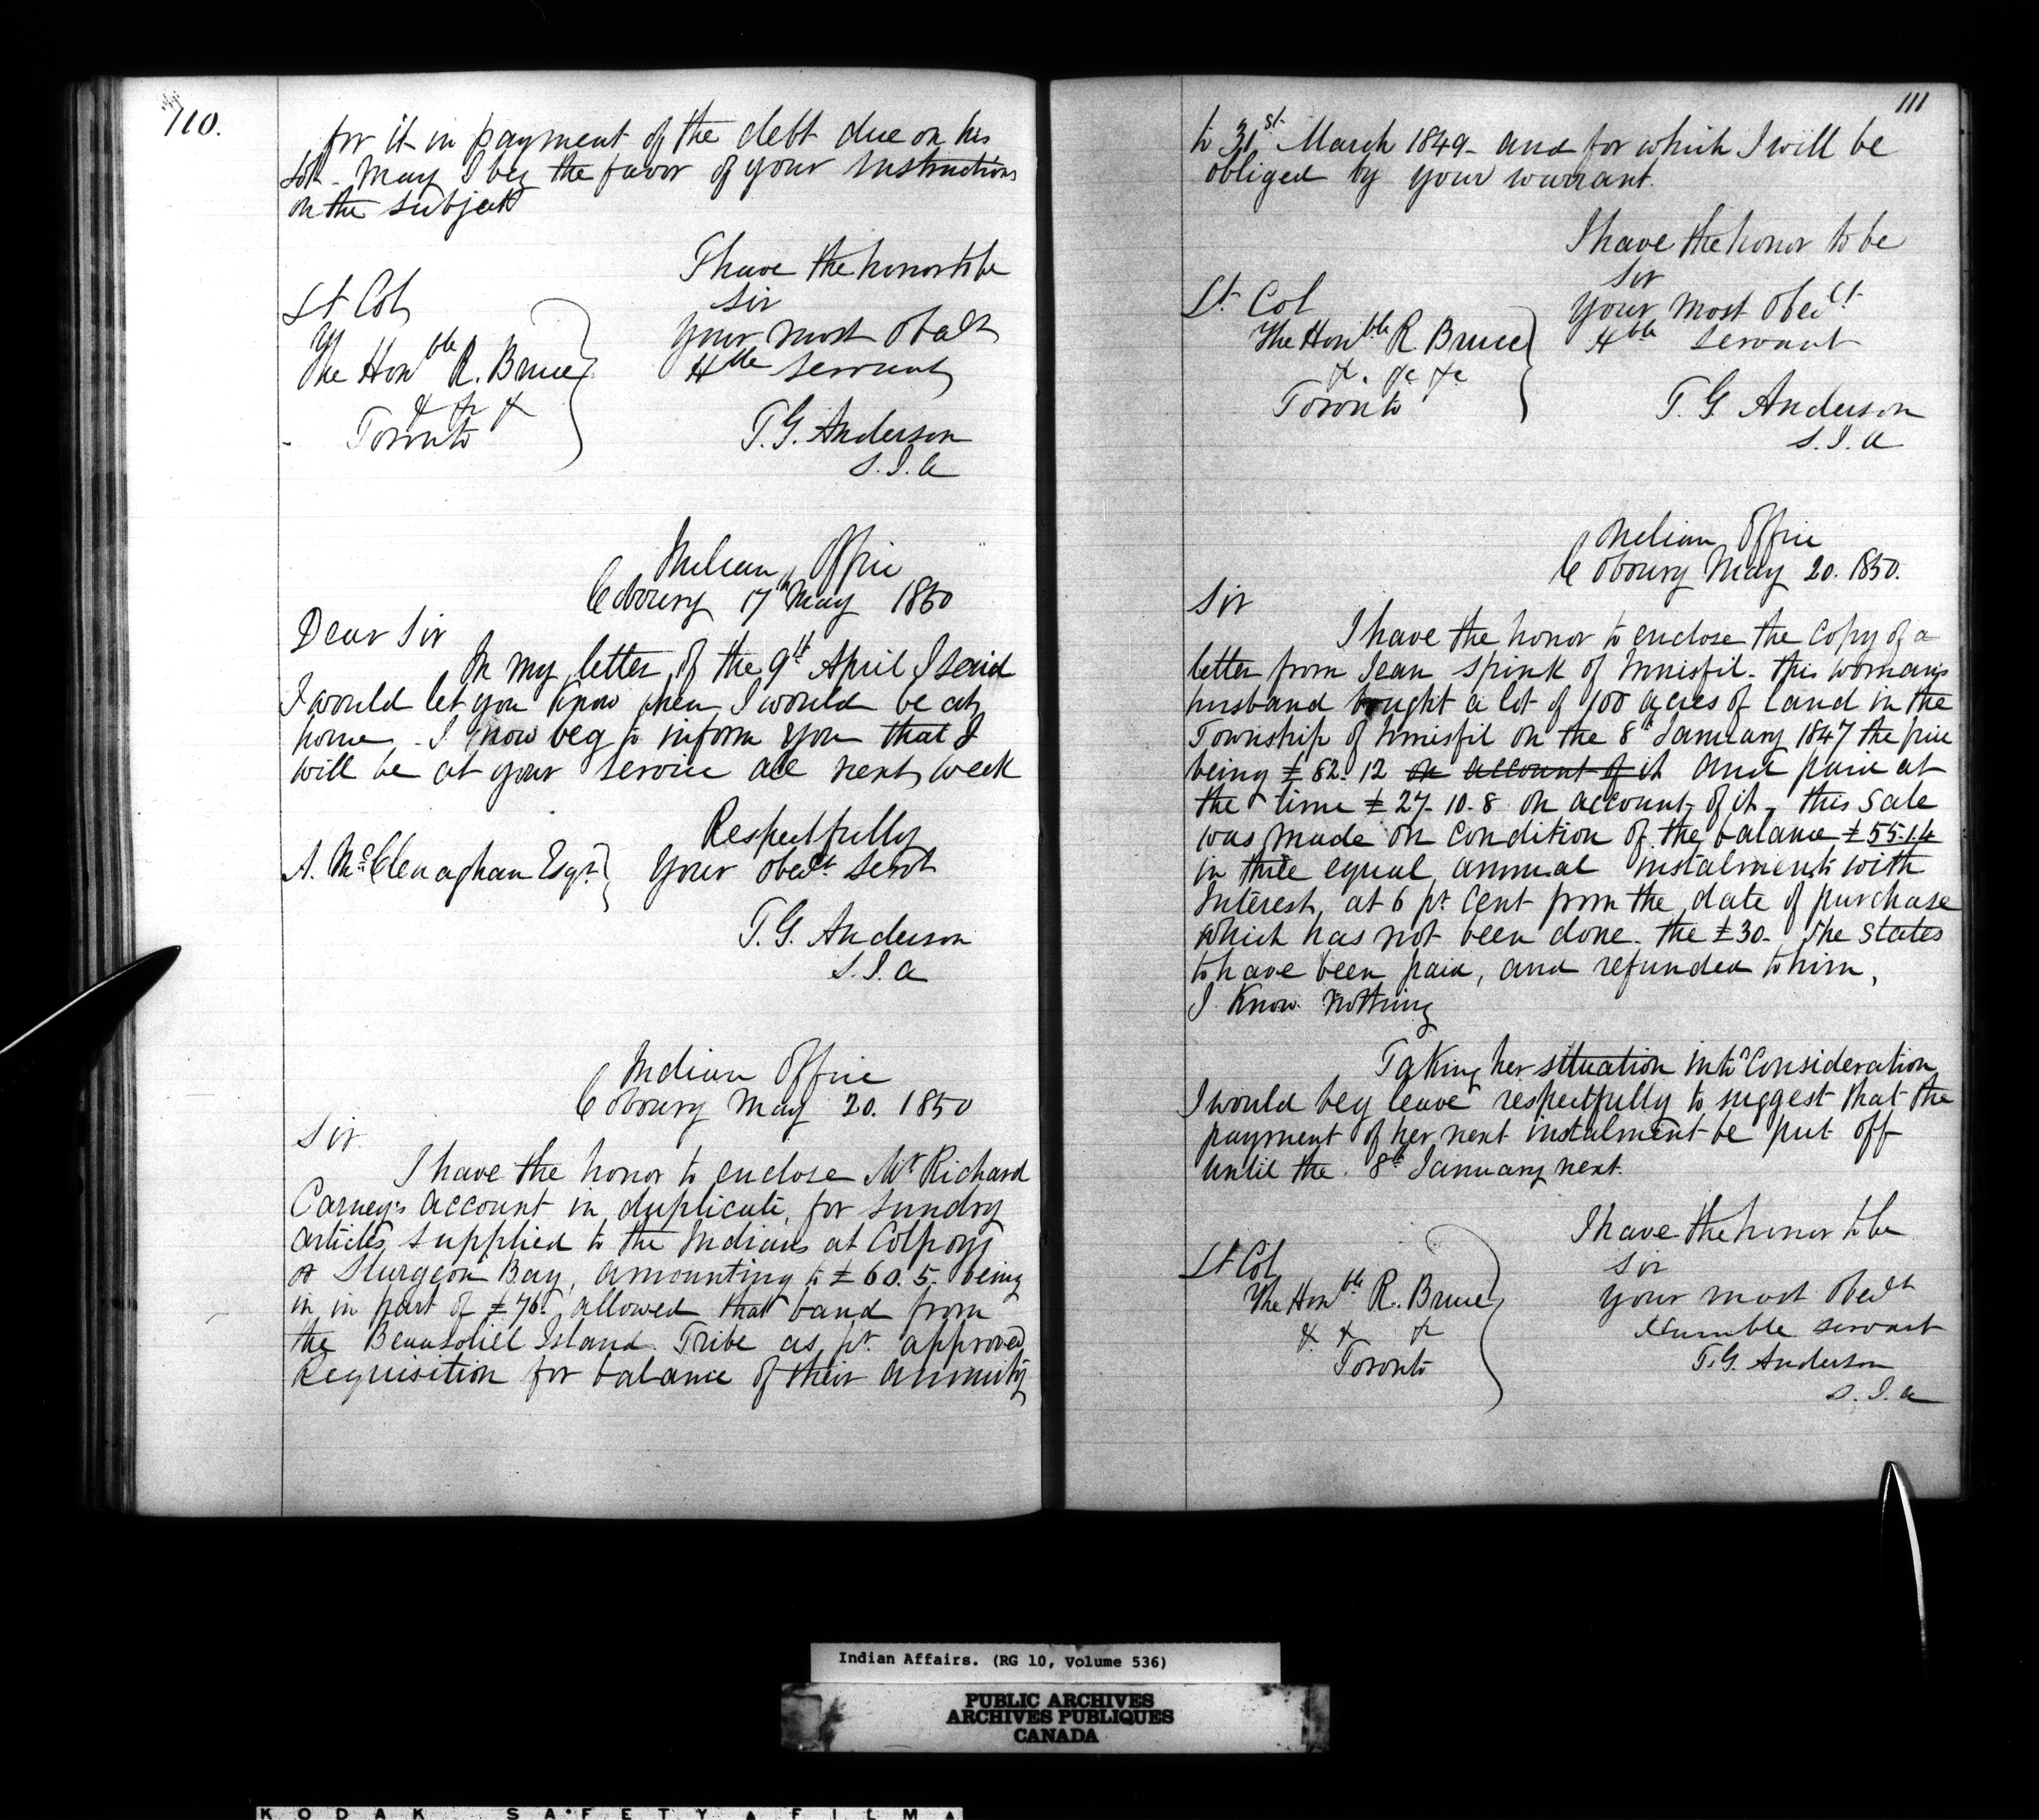 110.
for it in payment of the debt due on his
lot - May I beg the favor of your Instructions
on the subject
I have the honor to be
Sir
Your most Obedt
Hble Servant
Lt Col
The Honble R. Bruce
& &c &
Toronto
T. G. Anderson
S. I. A
Indian Office
Cobourg 17th May 1850
Dear Sir
In my letter of the 9th April I said
I would let you know when I would be at
home - I now beg to inform you that I
will be at your service all next week
Respectfully
Your Obedt Servt
A. McClenaghan Esqr
T. G. Anderson
S. I. A
Indian Office
Cobourg May 20. 1850
Sir
I have the honor to enclose Mr Richard
Carney's account in duplicate, for sundry
articles supplied to the Indians at Colpoys
or Sturgeon Bay, amounting to £60. 5. being
in in part of £76. allowed that band from
the Beausoliel Island Tribe as pr approved
Requisition for balance of their annuity
111
to 31st March 1849 - and for which I will be
obliged by your warrant.
I have the honor to be
Sir
Your most Obedt
Hble Servant
Lt Col
The Honble R. Bruce
&. &c &c
Toronto
T. G Anderson
S. I. A
Indian Office
Cobourg May 20. 1850.
Sir
I have the honor to enclose the copy of a
letter from Jean Spink of Innisfil - this woman's
husband bought a lot of 100 acres of land in the
Township of Innisfil on the 8th January 1847 the price
being £82. 12 on account of it and paid at
the time £27. 10. 8 on account of it - this sale
was made on condition of the balance £55.1.4
in three equal annual instalments with
Interest, at 6 pr Cent from the date of purchase
which has not been done. the £30. She states
to have been paid, and refunded to him,
I Know nothing
Taking her situation into Consideration
I would beg leave respectfully to suggest that the
payment of her next instalment be put off
until the 8th January next.
I have the honor to be
Sir
Your most Obedt
Humble servant
Lt Col
The Honble R. Bruce
& & &c
Toronto
T. G. Anderson
S. I. A
Indian Affairs. (RG 10, Volume 536)
PUBLIC ARCHIVES
ARCHIVES PUBLIQUES
CANADA
KODAK SAFETY FILM